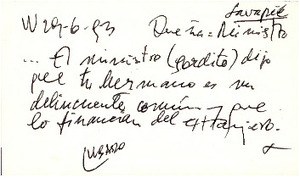 Lavapié
W 29-6-93 Dueña = Ministro
... El ministro (gordito) dijo
que tu hermano es un
delincuente común y que
lo financian del extranjero.